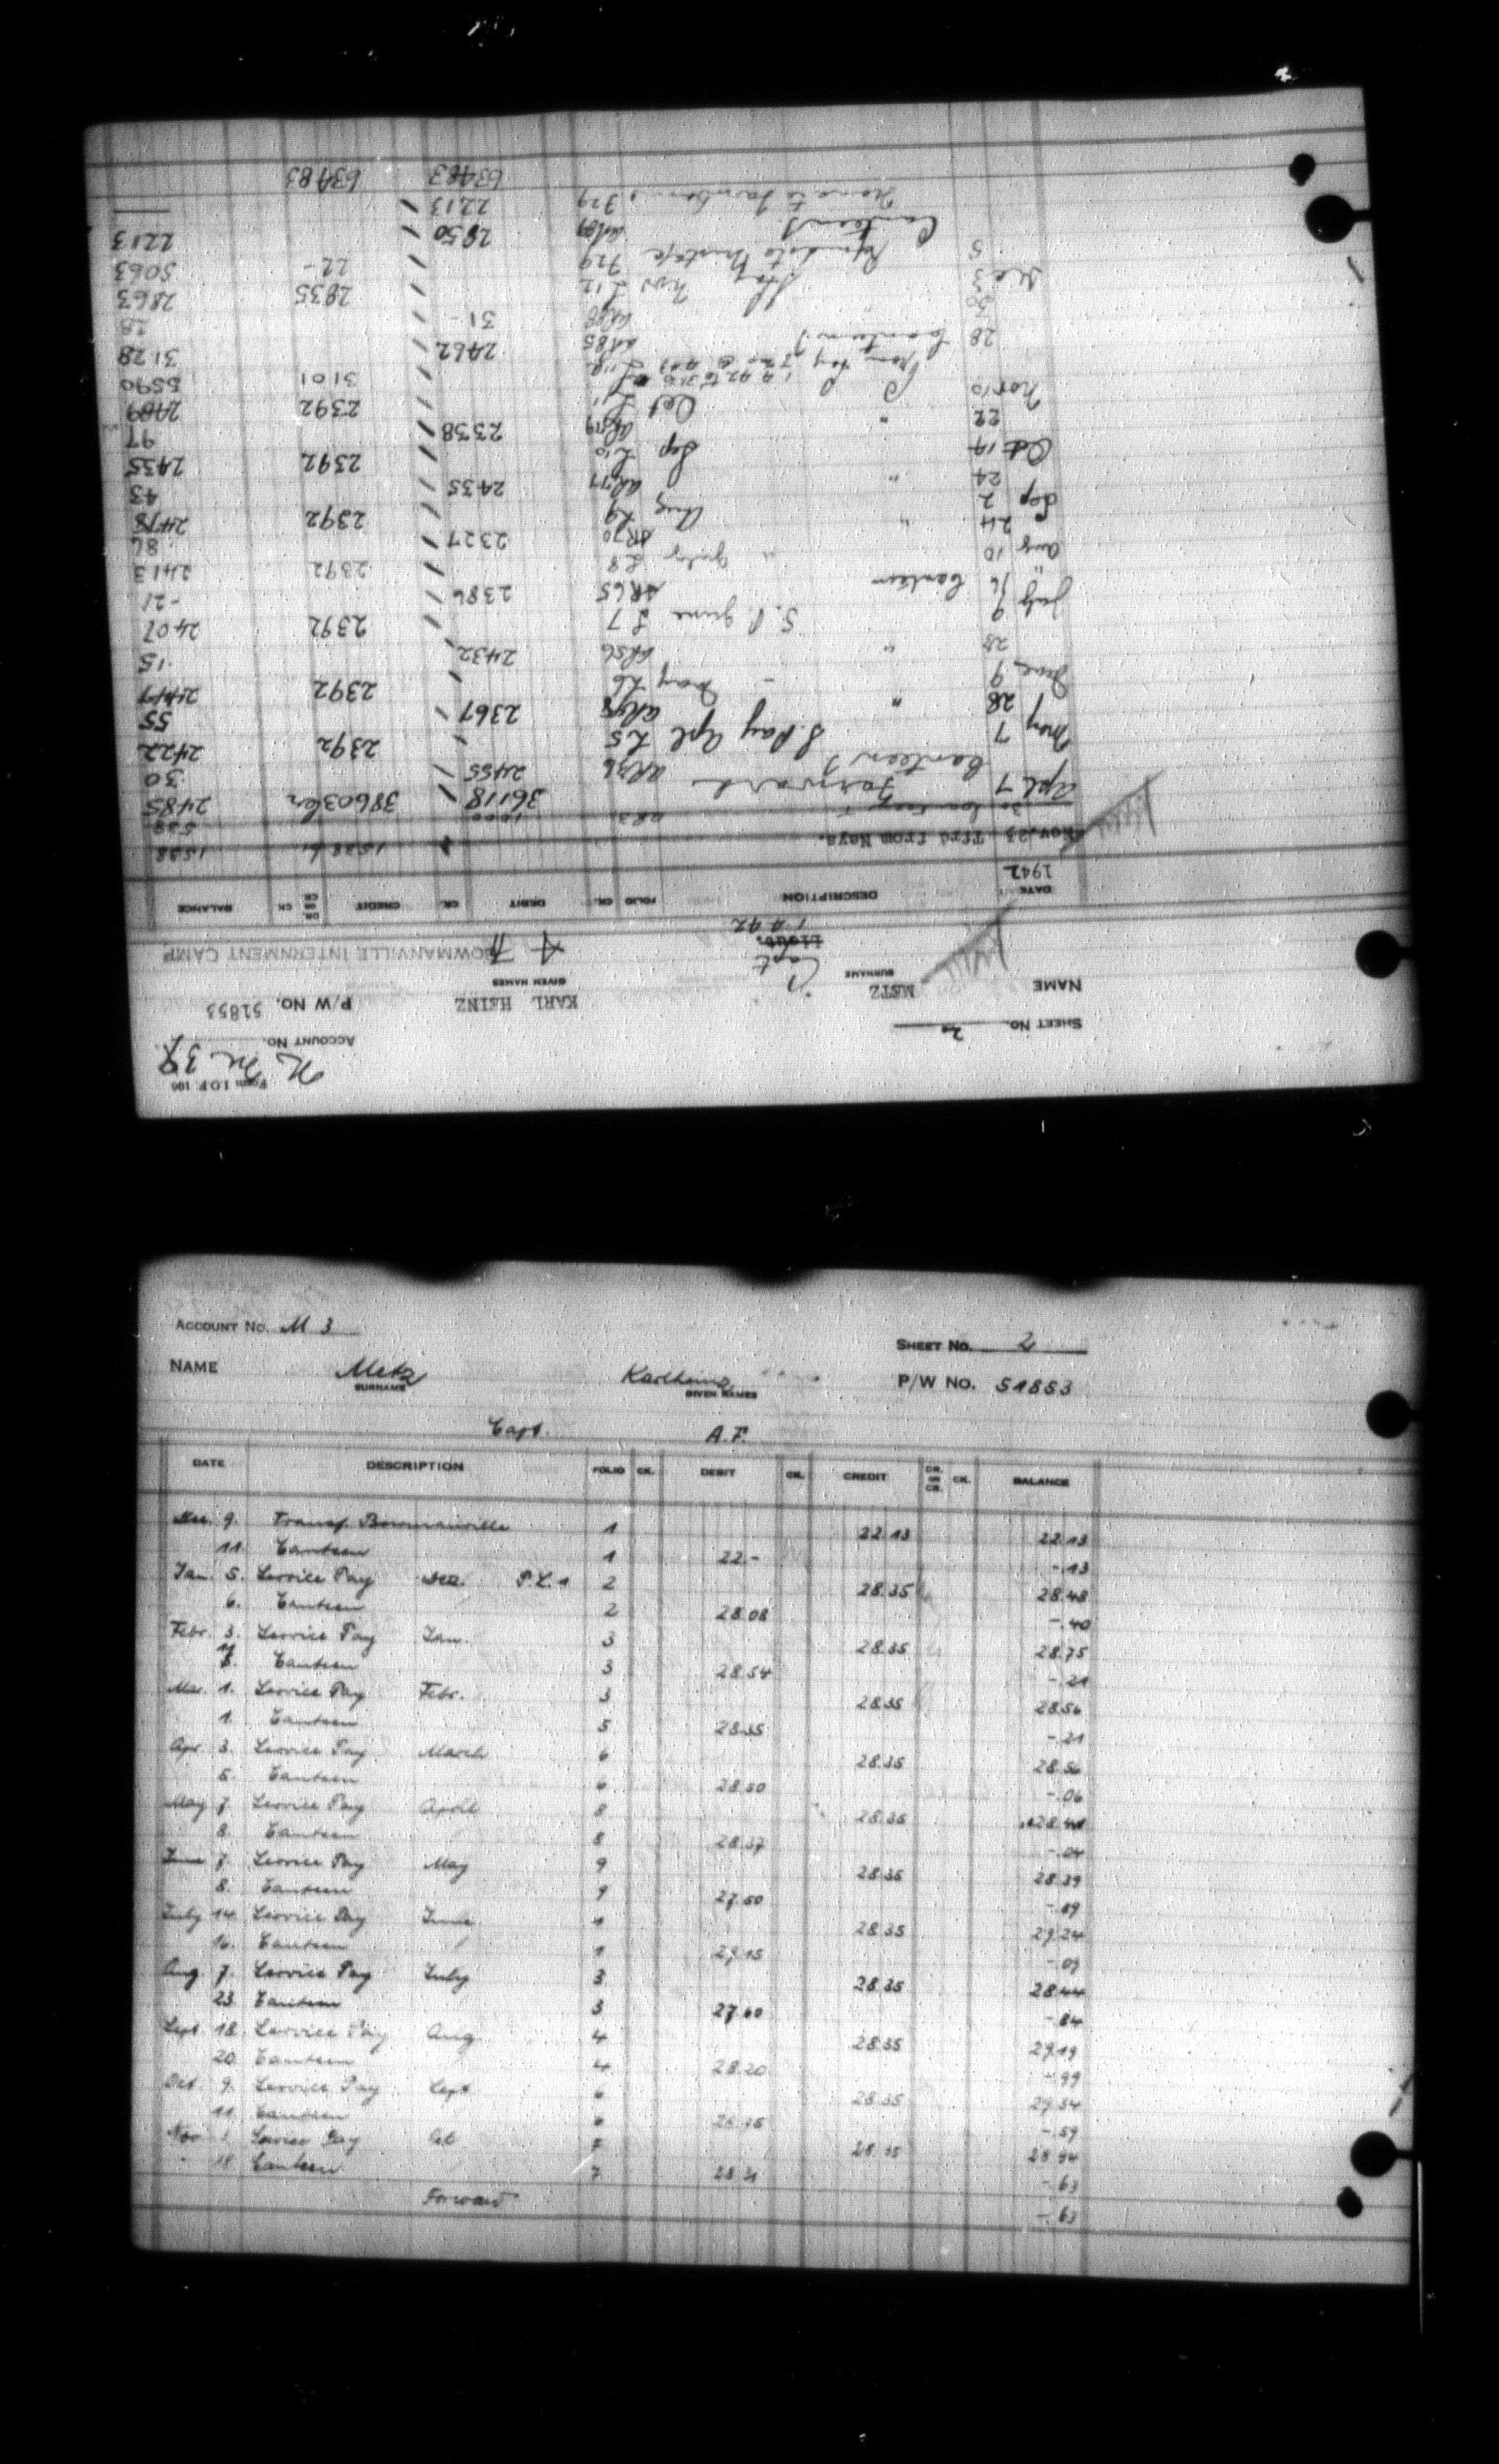 Form I.O.F. 106
ACCOUNT No.
SHEET No. 2a
NAME METZ KARL HEINZ P/W No. 51853
SURNAME GIVEN NAMES
Capt Lieut. 1 4 42 BOWMANVILLE INTERNMENT CAMP
DATE DESCRIPTION FOLIO CK. DEBIT CK. CREDIT DR. OR CR. CK. BALANCE
1942
Nov. 23 Tfrd from Naya. 1538 1538
30 Canteen AR3. 1000 538
Forward 36118 38603 Cr 2485
Apl 7 Canteen AR36 2455 30
May 7 S. Pay Apl L5 2392 2422
28 " 2367 55
June 9 " May L6 2392 2447
28 " AR56 2432 15
July 9 S.P. June L7 2392 2407
16 Canteen AR65 2386 21
Aug 10 " July L8 2392 2413
24 " AR70 2327 86
Sep 2 Aug L9 2392 2478
24 " AR77 2435 43
Oct 14 Sep L10 2392 2435
22 " AR79 2338 97
Oct L11 2392 2489
Nov 10 3101 5590
AR85 2462 3128
28 Canteen AR88 31- 28
30 Nov L12 2835 2863
Dec 3 Refund 729 22- 5063
5 Canteen AR89 2850 2213
Trans to 329 2213
63483 63483
ACCOUNT No. M 3 SHEET No. 2
NAME Metz Karlheinz P/W No. 51853
SURNAME GIVEN NAMES
Capt. A.F.
DATE DESCRIPTION FOLIO CK. DEBIT CK. CREDIT DR. OR CR. CK. BALANCE
Dec. 9. Transf. Bowmanville 1 22.13 22.13
11. Canteen 1 22.- -.13
Jan. 5. Service Pay Dez. P.L. 1 2 28.35 28.48
6. Canteen 2 28.08 -.40
Febr. 3. Service Pay Jan. 3 28.35 28.75
Canteen 3 28.54 -.21
Mar. 1. Service Pay Febr. 3 28.35 28.56
1. Canteen 5 28.35 -.21
Apr. 3. Service Pay March 6 28.35 28.56
5. Canteen 6 28.50 -.06
May 7. Service Pay April 8 28.35 28.41
8. Canteen 8 28.37 -.04
June 7. Service Pay May 9 28.35 28.39
8. Canteen 9 27.50 -.89
July 14. Service Pay June 1 28.35 29.24
16. Canteen 1 29.15 -.09
Aug. 7. Service Pay July 3 28.35 28.44
23. Canteen 3 27.60 -.84
Sept. 18. Service Pay Aug. 4 28.35 29.19
20. Canteen 4 28.20 -.99
Oct. 9. Service Pay Sept. 6 28.35 29.34
11. Canteen 6 28.75 -.59
Nov. Service Pay Oct 7 28.35 28.94
18. Canteen 7 28.31 -.63
Forward -.63